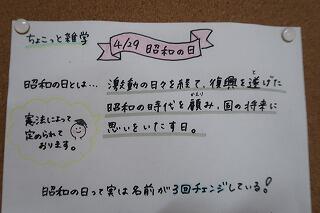 ちょこっと雑学
4/29 昭和の日
昭和の日とは… 激動の日々を経て、復興を遂げた
昭和の時代を顧み、国の将来に
思いをいたす日。
憲法によって
定められて
おります。
昭和の日って実は名前が3回チェンジしている!